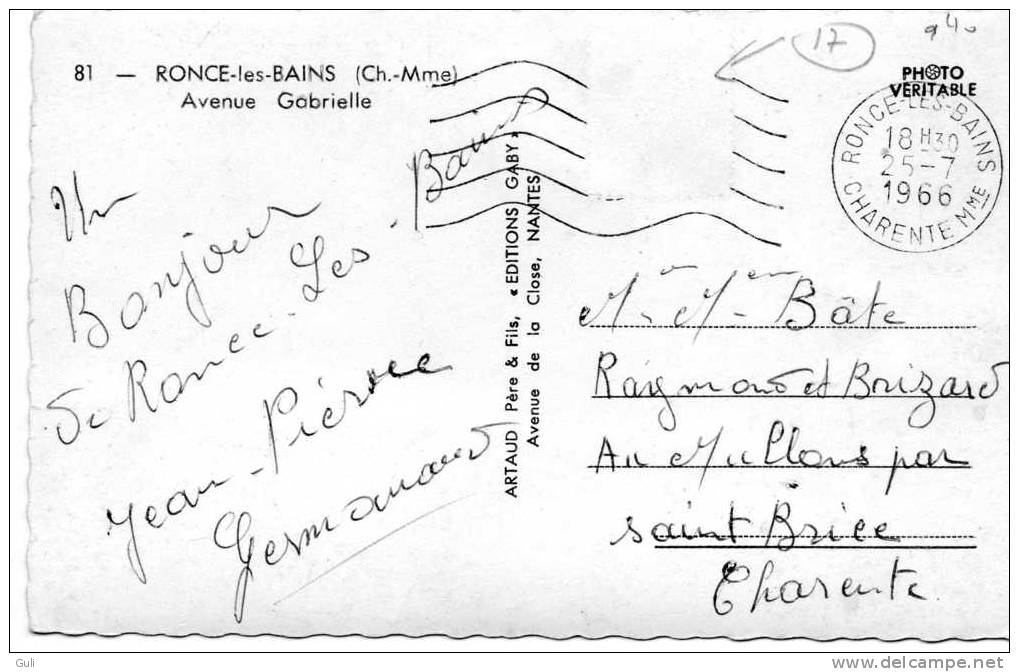 81 — RONCE-les-BAINS (Ch.-Mme)
Avenue Gabrielle
17
PHOTO
VÉRITABLE
RONCE-LES-BAINS
18H30
25-7
1966
CHARENTE MME
Un
Bonjour
de Ronce-Les-Bains
Jean-Pierre
Germanaud
ARTAUD Père & Fils, « EDITIONS GABY »
Avenue de la Close, NANTES
Mr Mme Bâte
Raymond et Brizard
Au Mullons par
saint Brice
Charente
Guli
www.delcampe.net